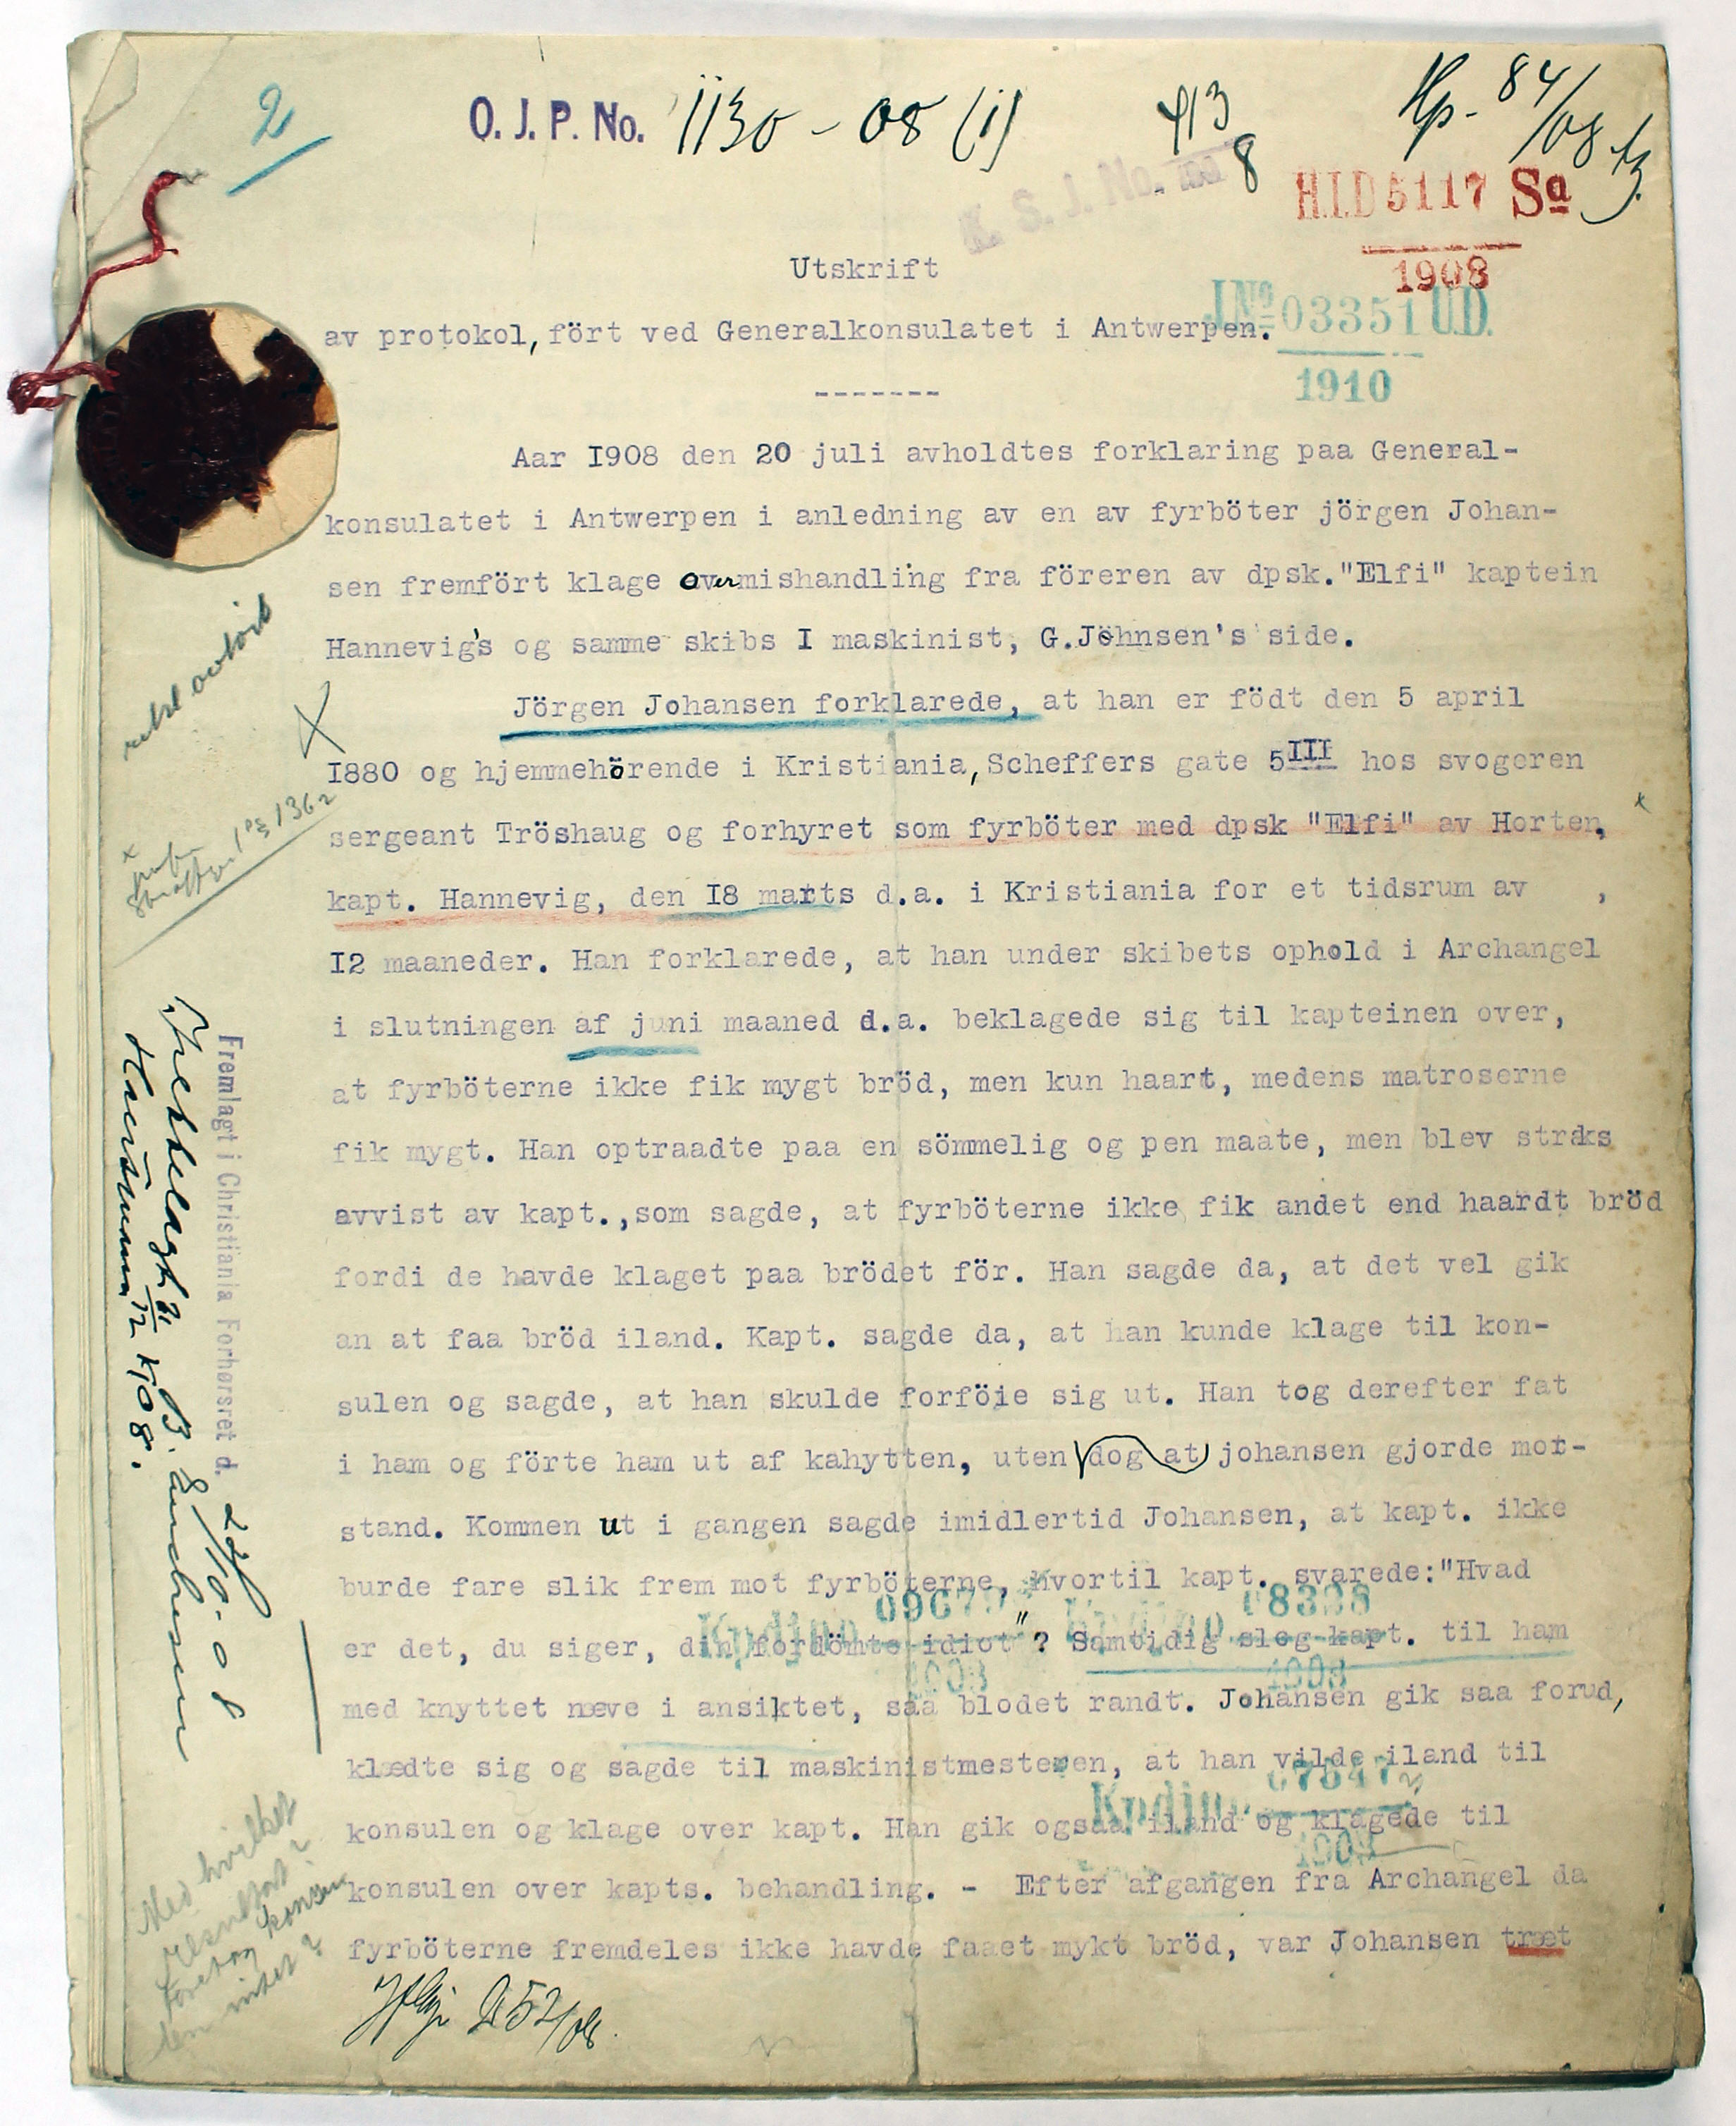 2
O. J. P. No. 1130 - 08 (1)
413
8
Hp. 84/08
K. S. J. No.
H.I.D 5117 Sa
1908
JNo 03351 U.D.
1910
Utskrift
av protokol, fört ved Generalkonsulatet i Antwerpen.
-------
Aar I908 den 20 juli avholdtes forklaring paa General-
konsulatet i Antwerpen i anledning av en av fyrböter jörgen Johan-
sen fremfört klage over mishandling fra föreren av dpsk."Elfi" kaptein
Hannevig's og samme skibs I maskinist, G.Jöhnsen's side.
Jörgen Johansen forklarede, at han er födt den 5 april
I880 og hjemmehörende i Kristiania, Scheffers gate 5III hos svogeren
sergeant Tröshaug og forhyret som fyrböter med dpsk "Elfi" av Horten,
kapt. Hannevig, den I8 marts d.a. i Kristiania for et tidsrum av ,
I2 maaneder. Han forklarede, at han under skibets ophold i Archangel
i slutningen af juni maaned d.a. beklagede sig til kapteinen over,
at fyrböterne ikke fik mygt bröd, men kun haart, medens matroserne
fik mygt. Han optraadte paa en sömmelig og pen maate, men blev straks
avvist av kapt.,som sagde, at fyrböterne ikke fik andet end haardt bröd
fordi de havde klaget paa brödet för. Han sagde da, at det vel gik
an at faa bröd iland. Kapt. sagde da, at han kunde klage til kon-
sulen og sagde, at han skulde forföie sig ut. Han tog derefter fat
i ham og förte ham ut af kahytten, uten dog at johansen gjorde mot-
stand. Kommen ut i gangen sagde imidlertid Johansen, at kapt. ikke
burde fare slik frem mot fyrböterne, hvortil kapt. svarede:"Hvad
er det, du siger, din fordömte idiot"? Samtidig slog kapt. til ham
med knyttet næve i ansiktet, saa blodet randt. Johansen gik saa forud,
klædte sig og sagde til maskinistmesteren, at han vilde iland til
konsulen og klage over kapt. Han gik ogsaa iland og klagede til
konsulen over kapts. behandling. - Efter afgangen fra Archangel da
fyrböterne fremdeles ikke havde faaet mykt bröd, var Johansen træt
Kpdjno
1908
Kpdjno 08338
1908
Kpdjno 07847
1908
Fremlagt i Christiania Forhørsret d. 22/10-08